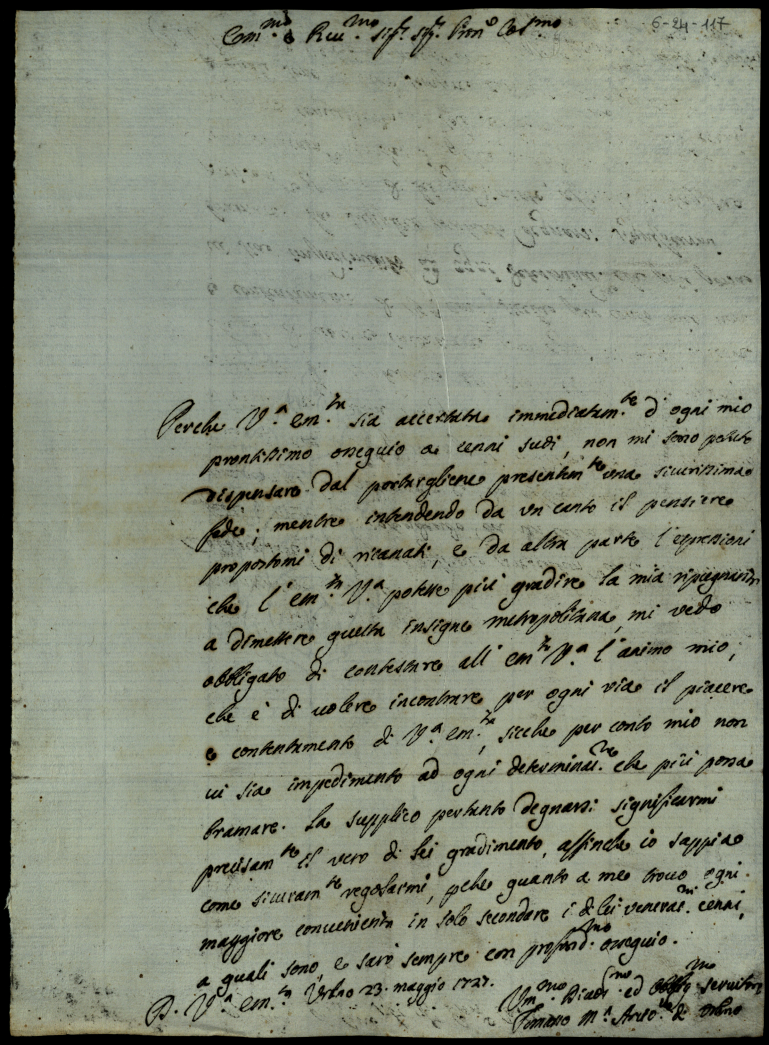 6-24-117
Em.mo e Rev.mo Sig.r Sig.r Pron Col.mo
Perche V.a Em.za sia accertata immediatam.te d'ogni mio
prontissimo ossequio a cenni suoi, non mi sono potuto
dispensare dal portargliene presentem.te una sicurissima
fede; mentre intendendo da un canto il pensiere
propostomi di ricanati, e da altra parte l'espressioni
che l'Em.za V.a potesse più gradire la mia ripugnanza
a dimettere questa insigne metropolitana, mi vedo
obbligato di contestare all'Em.za V.a l'animo mio,
che è di volere incontrare per ogni via il piacere
e contentamento di V.a Em.za, sicche per conto mio non
vi sia impedimento ad ogni determinaz.ne che più possa
bramare. La supplico pertanto degnarsi significarmi
precisam.te il vero di Lei gradimento, affinche io sappia
come sicuram.te regolarmi, pche quanto a me trovo ogni
maggiore convenienza in solo secondare i di lei venerat.mi cenni,
a quali sono, e sarò sempre con profond.mo ossequio.
D. V.a Em.za Urbno 23. maggio 1727.
Um.mo Divot.mo ed Obblig.mo servitore
Tomaso M.a Arciv.o di Urbino